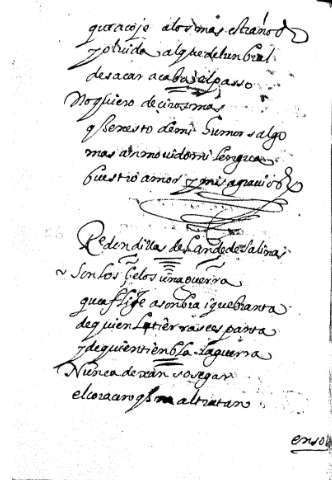 que acoje a los mas estraños
y oluida al que del unbral
de sacar acaba el passo
No quiero deciros mas
q̃ en esto de mi humor salgo
mas an mouido mi lengua
buestro amor y mis agrauios
Redondillas del conde de salinas
son los çelos una guerra
que aflige asonbra i quebranta
de quien la tierra se espanta
y de quien tienbla la guerra
Nunca dexan sosegar
el coraçon q̃ maltratan